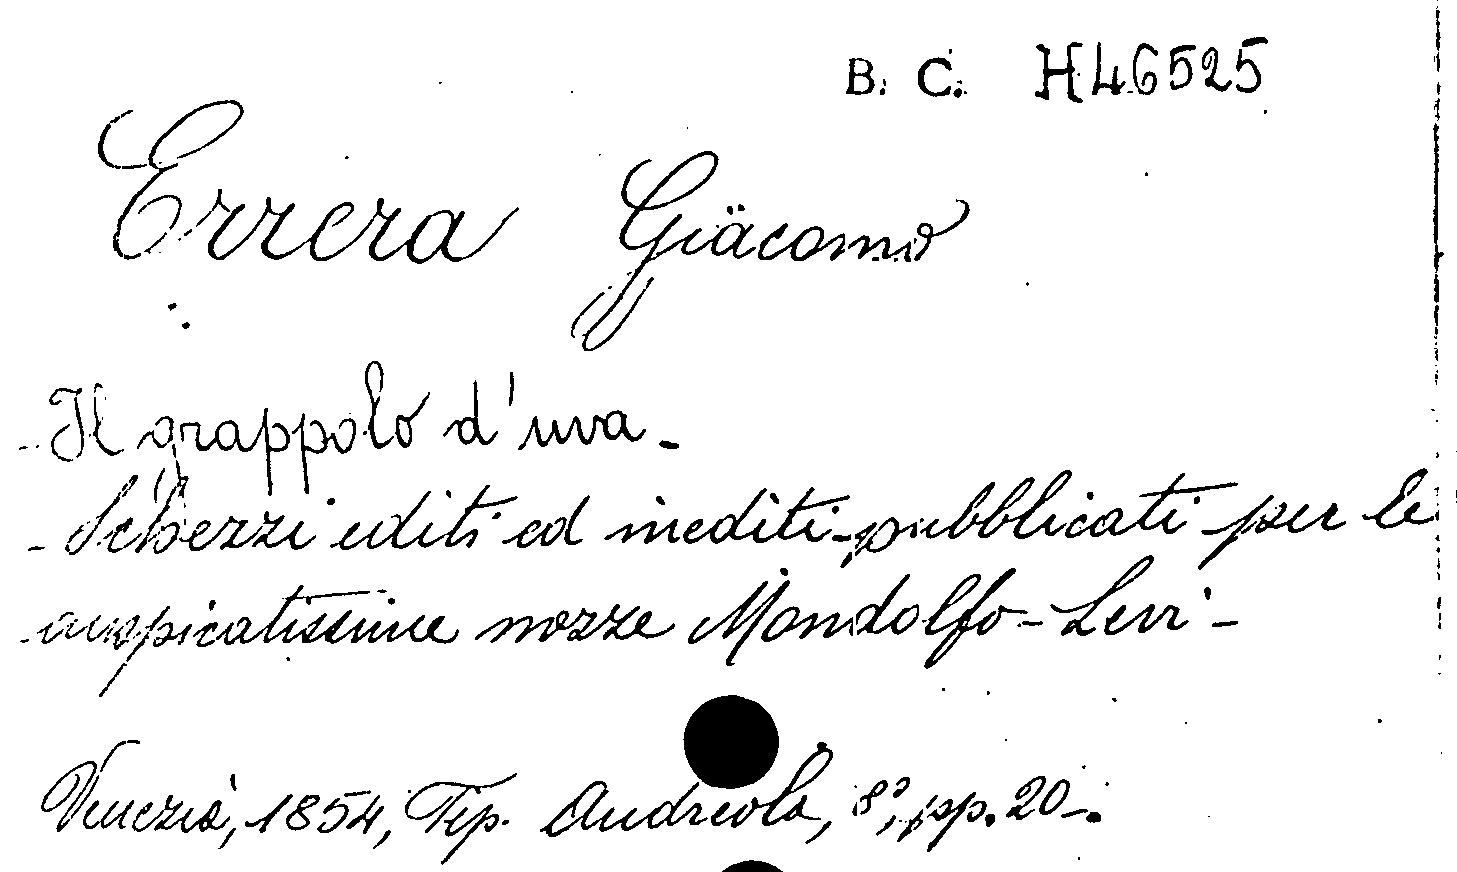 B. C. H46525
Errera Giacomo
- Il grappolo d'uva -
- Scherzi editi ed inediti - pubblicati per le
auspicatissime nozze Mondolfo - Levi -
Venezia, 1854, Tip. Andreola, 8°, pp. 20 -.